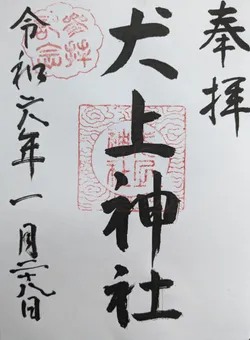 奉拝
犬上神社
令和六年一月二十八日
参拝
記念